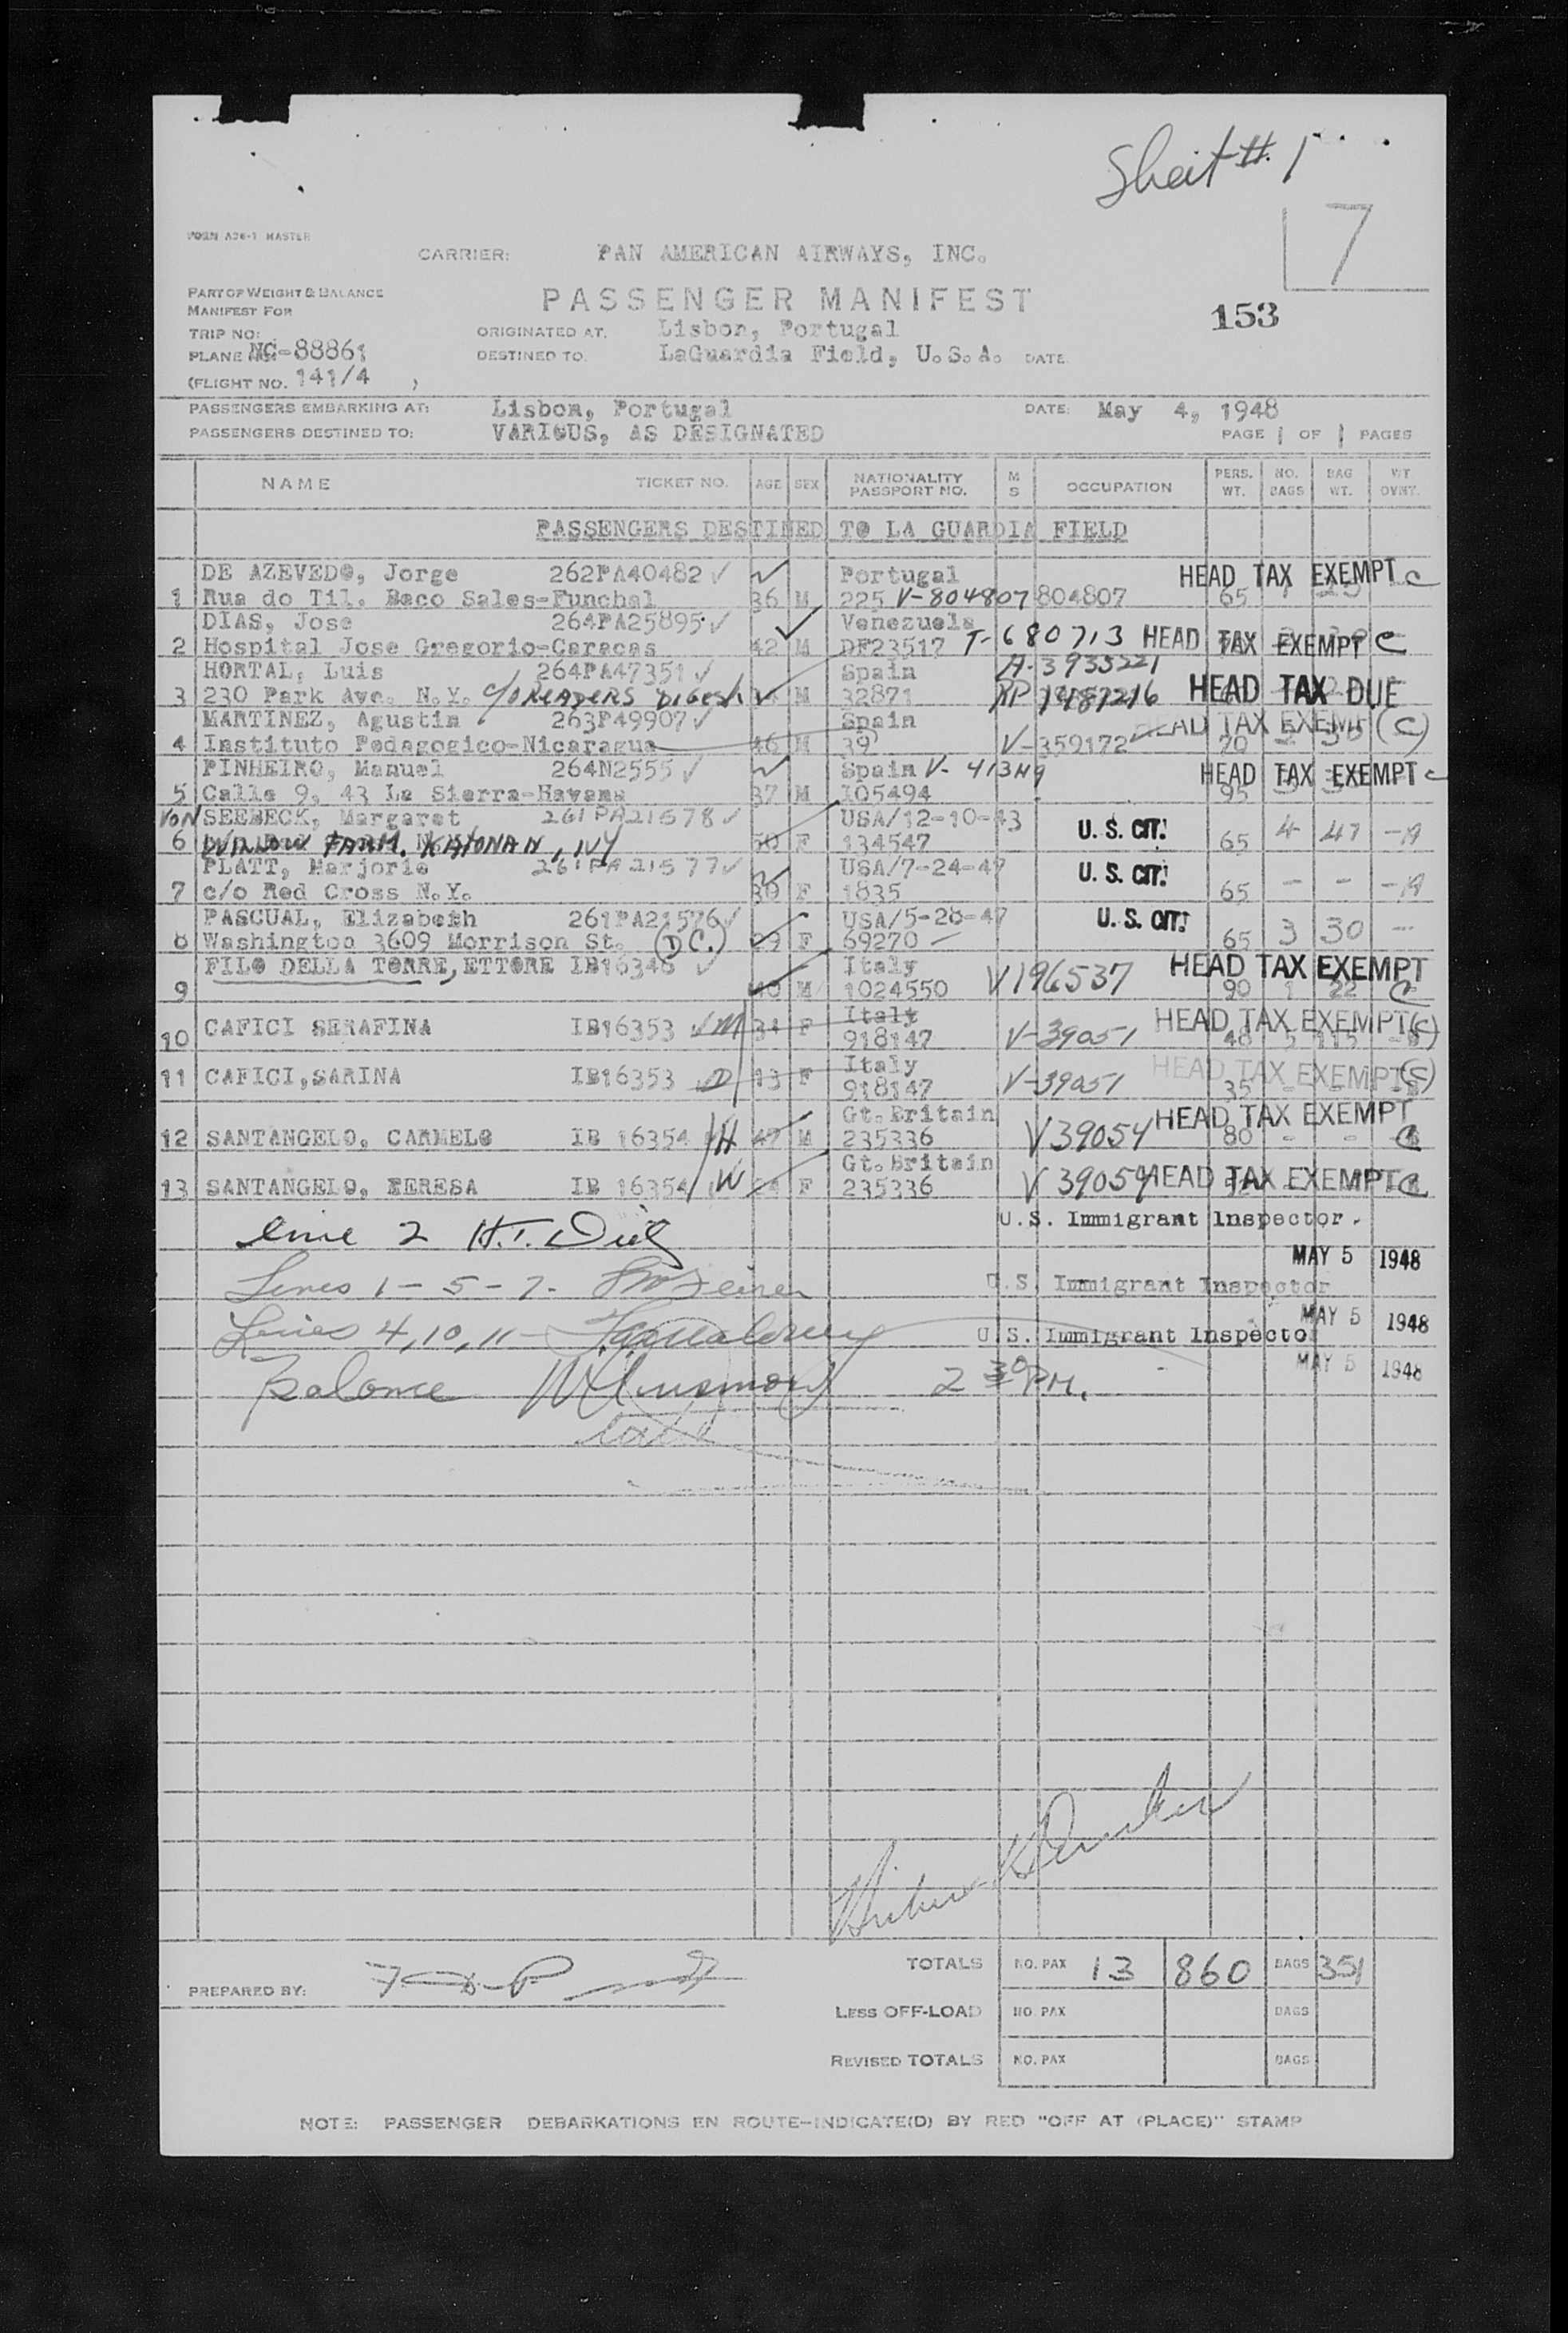 Sheit # 1
7
FORM A26-1 MASTER
CARRIER: PAN AMERICAN AIRWAYS, INC.
PART OF WEIGHT & BALANCE
MANIFEST FOR
PASSENGER MANIFEST
153
TRIP NO:
ORIGINATED AT. Lisbon, Portugal
PLANE NC-88861
DESTINED TO. LaGuardia Field, U.S.A. DATE
(FLIGHT NO. 141/4 )
PASSENGERS EMBARKING AT: Lisbon, Portugal DATE: May 4, 1948
PASSENGERS DESTINED TO: VARIOUS, AS DESIGNATED PAGE 1 OF 1 PAGES
NAME TICKET NO. AGE SEX NATIONALITY PASSPORT NO. M S OCCUPATION PERS. WT. NO. BAGS BAG WT. WT OVWT.
PASSENGERS DESTINED TO LA GUARDIA FIELD
DE AZEVEDO, Jorge 262PA40482 Portugal HEAD TAX EXEMPT C
1 Rua do Til. Beco Sales-Funchal 36 M 225 V-804807 804807 65
DIAS, Jose 264PA25895 Venezuela
2 Hospital Jose Gregorio-Caracas 42 M DF23517 T-680713 HEAD TAX EXEMPT C
HORTAL, Luis 264PA47351 Spain A-3935221
3 230 Park Ave. N.Y. C/O READERS DIGEST M 32871 RP 1487216 HEAD TAX DUE
MARTINEZ, Agustin 263P49907 Spain HEAD TAX EXEMP (C)
4 Instituto Pedagogico-Nicaragua 46 M 39 V-359172 70
PINHEIRO, Manuel 264N2555 Spain V-413419 HEAD TAX EXEMPT C
5 Calle 9, 43 La Sierra-Havana 37 M 105494 95
VON SEEBECK, Margaret 261PA21578 USA/12-10-43 U. S. CIT. 4 47
6 WILLOW FARM. KATONAH, NY 50 F 134547 65
PLATT, Marjorie 261PA21577 USA/7-24-47 U. S. CIT. - -
7 c/o Red Cross N.Y. 30 F 1835 65
PASCUAL, Elizabeth 261PA21576 USA/5-28-47 U. S. CIT. 3 30
8 Washington 3609 Morrison St. (D C.) 29 F 69270 65
FILO DELLA TORRE, ETTORE IB16348 Italy V196537 HEAD TAX EXEMPT
9 40 M 1024550 90 1 22 C
10 CAFICI SERAFINA IB16353 M 34 F Italy 918147 V-39051 HEAD TAX EXEMPT (C)
11 CAFICI, SARINA IB16353 D 13 F Italy 918147 V-39051 HEAD TAX EXEMPT (C) 35
12 SANTANGELO, CARMELO IB 16354 H 47 M Gt. Britain 235336 V39054 HEAD TAX EXEMPT 80 - - C
13 SANTANGELO, TERESA IB 16354 W F Gt. Britain 235336 V 39054 HEAD TAX EXEMPT C
Line 2 H.T. U.S. Immigrant Inspector.
MAY 5 1948
Lines 1-5-7- U.S. Immigrant Inspector
MAY 5 1948
Lines 4, 10, 11- U.S. Immigrant Inspector
MAY 5 1948
Balance 2 30 PM.
PREPARED BY:
TOTALS NO. PAX 13 860 BAGS 351
LESS OFF-LOAD NO. PAX BAGS
REVISED TOTALS NO. PAX BAGS
NOTE: PASSENGER DEBARKATIONS EN ROUTE-INDICATE(D) BY RED "OFF AT (PLACE)" STAMP